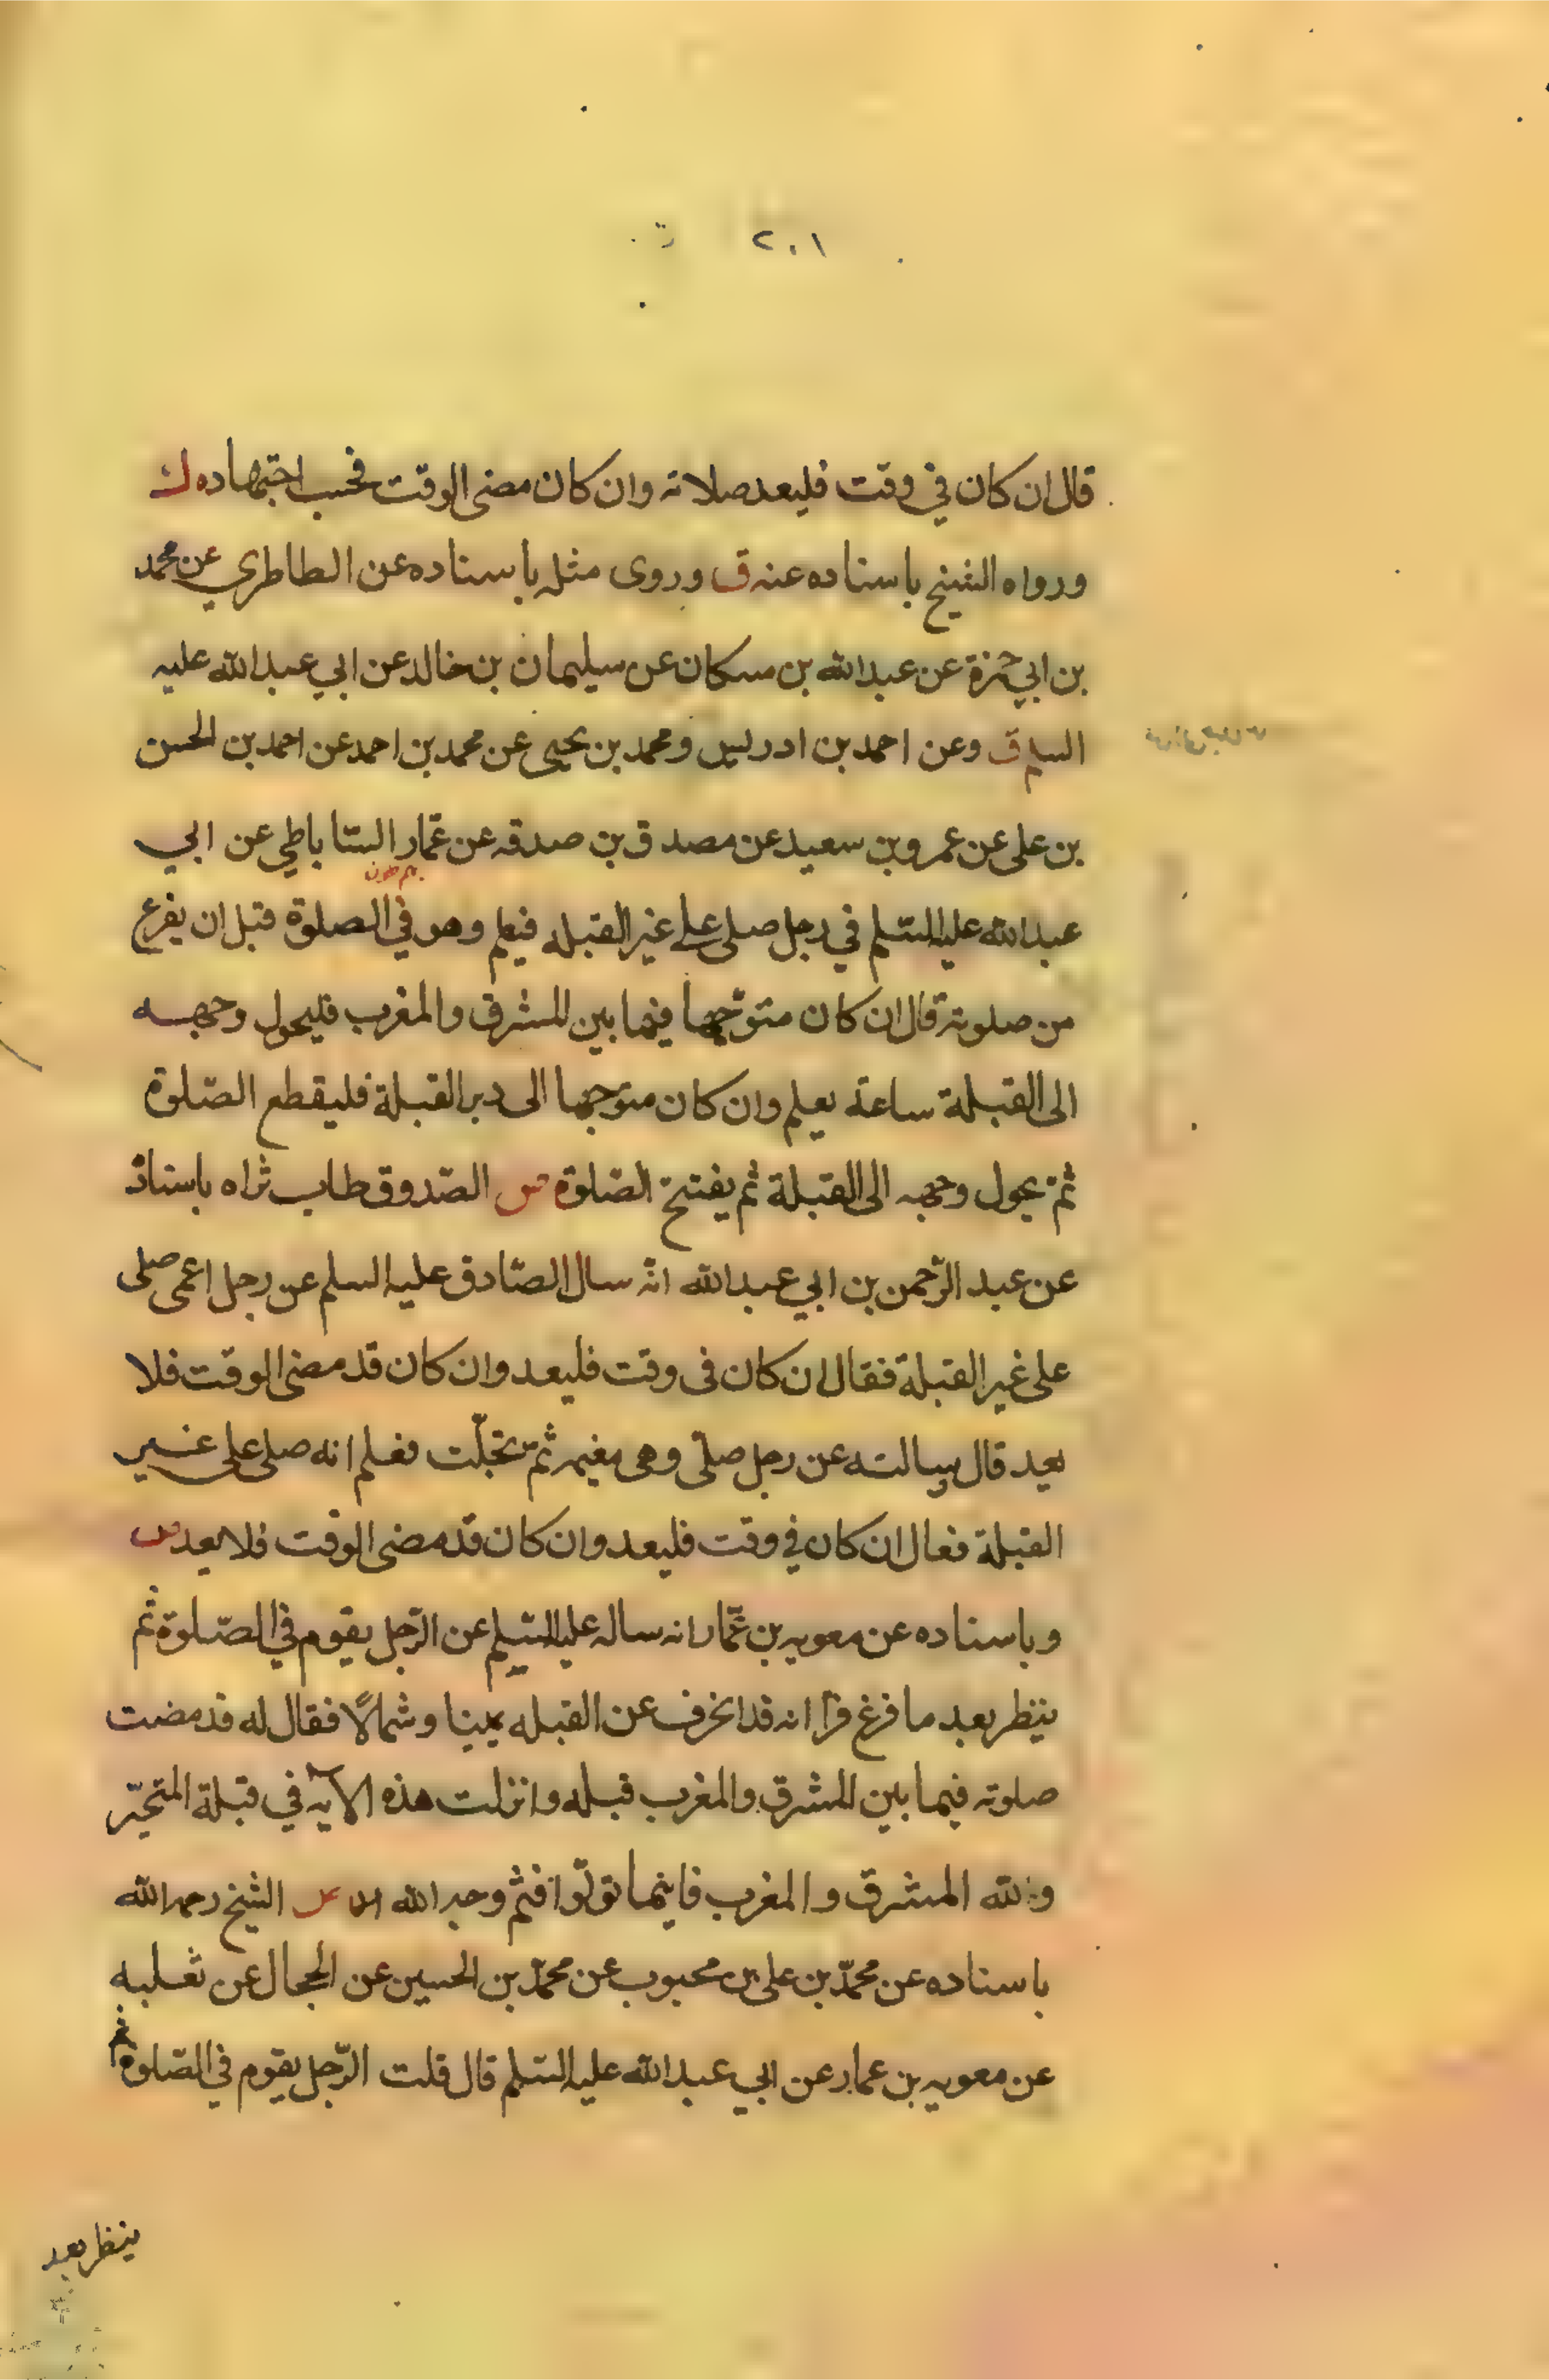 ٢٠١
قال ان كان في وقت فليعد صلاته وان كان مضى الوقت فحسب اجتهاده
ورواه الشيخ باسناده عنه ق وروى مثله باسناده عن الطاطري عن محمد
بن ابي حمزة عن عبد الله بن مسكان عن سليمان بن خالد عن ابي عبد الله عليه
السلم ق وعن احمد بن ادريس ومحمد بن يحيى عن محمد بن احمد عن احمد بن الحسن
بن على عن عمرو بن سعيد عن مصدق بن صدقه عن عمّار السّاباطي عن ابي
عبد الله عليه السّلم في رجل صلى على غير القبله فيعلم وهو في الصلوة قبل ان يفرغ
من صلوته قال ان كان متوجّها فيما بين المشرق والمغرب فليحول وجهه
الى القبلة ساعة يعلم وان كان متوجها الى دبر القبلة فليقطع الصّلوة
ثمّ يحول وجهه الى القبلة ثم يفتتح الصّلوة س الصّدوق طاب ثراه باسناد
عن عبد الرّحمن بن ابي عبد الله انّه سال الصّادق عليه السلم عن رجل اعمى صلى
على غير القبلة فقال ان كان فى وقت فليعد وان كان قد مضى الوقت فلا
يعد قال وسالته عن رجل صلّى وهى مغيمه ثمّ تجلّت فعلم انه صلى على غير
القبلة فقال ان كان في وقت فليعد وان كان قد مضى الوقت فلا يعد س
وباسناده عن معويه بن عمّار انه ساله عليه السّلم عن الرّجل يقوم في الصّلوة ثم
ينظر بعد ما فرغ فرا انه قد انحرف عن القبله يمينا وشمالًا فقال له قد مضت
صلوته فيما بين المشرق والمغرب قبله وانزلت هذه الآيه في قبلة المتحيّر
ولله المشرق والمغرب فاينما تولّوا فثمّ وجه الله الشيخ رحمه الله
باسناده عن محمّد بن على بن محبوب عن محمّد بن الحسين عن الحجال عن ثعلبه
عن معويه بن عمار عن ابي عبد الله عليه السّلم قال قلت الرّجل يقوم في الصّلوة ثم
ينظر بعد